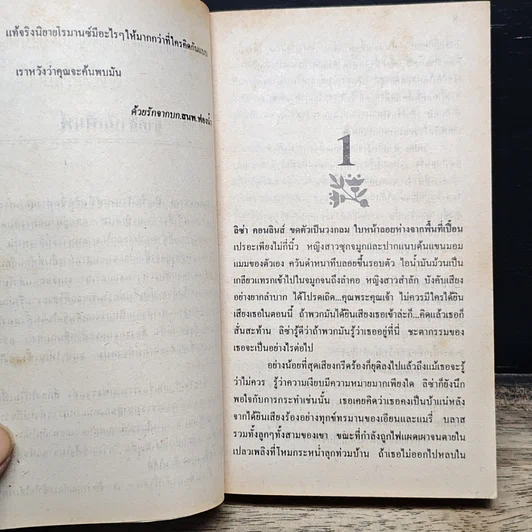 แท้จริงนิยายโรมานซ์มีอะไรๆให้มากกว่าที่ใครคิดกัน
เราหวังว่าคุณจะค้นพบมัน
ด้วยรักจากบก.
1
ลิซ่า คอนลินส์ ขดตัวเป็นวงกลม ใบหน้าลอยห่างจากพื้นที่เปื้อน
เปรอะเพียงไม่กี่นิ้ว หญิงสาวซุกจมูกและปากแนบต้นแขนมอม
แมมของตัวเอง ควันดำหนาทึบลอยขึ้นรอบตัว ไอน้ำมันม้วนเป็น
เกลียวแทรกเข้าไปในจมูกจนถึงลำคอ หญิงสาวสำลัก บังคับเสียง
อย่างยากลำบาก ได้โปรดเถิด...คุณพระคุณเจ้า ไม่ควรมีใครได้ยิน
เสียงเธอในตอนนี้ ถ้าพวกมันได้ยินเสียงเธอเข้าล่ะก็...คิดแล้วเธอก็
สั่นสะท้าน ลิซ่ารู้ดีว่าถ้าพวกมันรู้ว่าเธออยู่ที่นี่ ชะตากรรมของ
เธอจะเป็นอย่างไรต่อไป
อย่างน้อยที่สุดเสียงกรีดร้องก็ยุติลงไปแล้วถึงแม้เธอจะรู้
ว่าไม่ควร รู้ว่าความเงียบมีความหมายมากเพียงใด ลิซ่าก็ยังนึก
พอใจกับการกระทำเช่นนั้น เธอเคยคิดว่าเธอคงเป็นบ้าแน่หลัง
จากได้ยินเสียงร้องอย่างทุกข์ทรมานของเอียนและแมรี่ บลาส
รวมทั้งลูกๆทั้งสามของเขา ขณะที่กำลังถูกไฟแผดเผาจนตายใน
เปลวเพลิงที่โหมกระหน่ำลุกท่วมบ้าน ถ้าเธอไม่ออกไปหลบใน